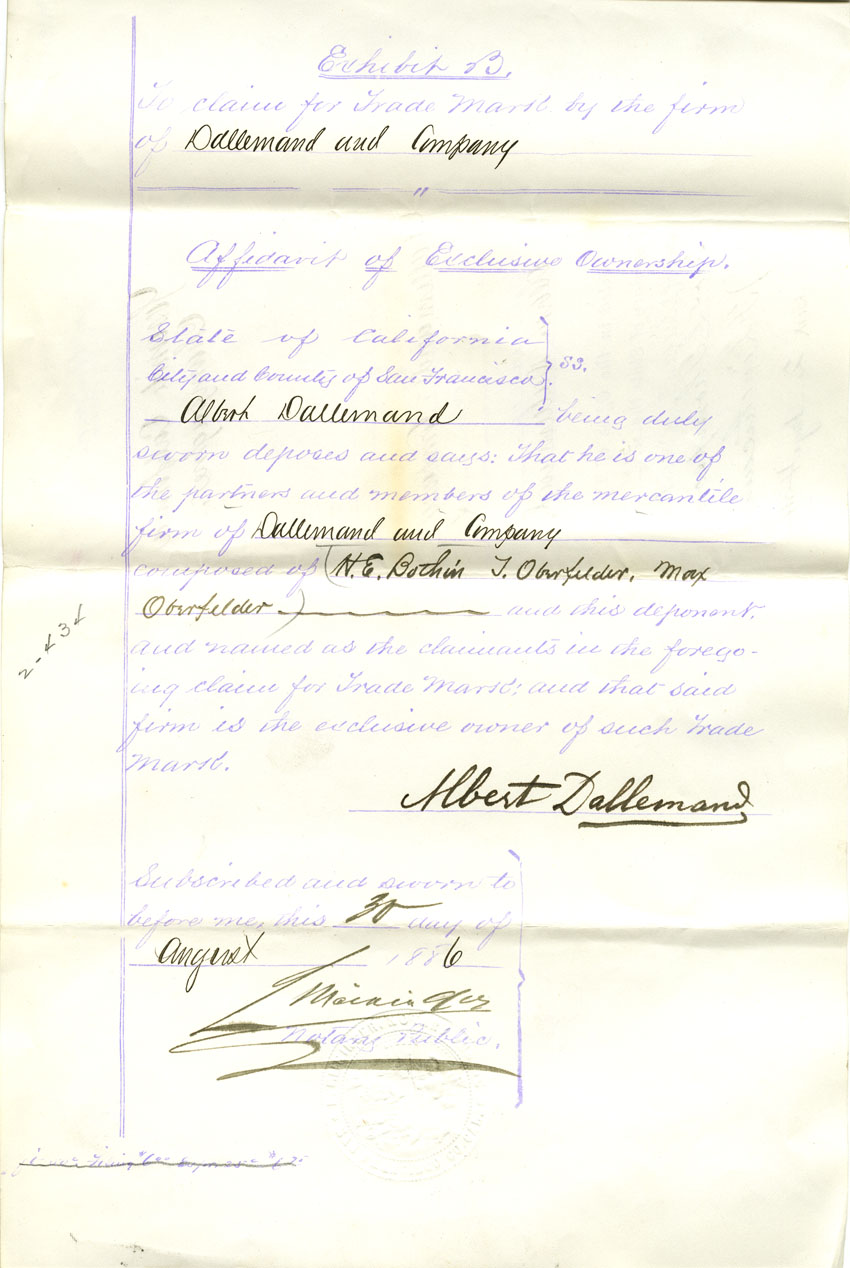 Exhibit B.
To claim for Trade Mark by the firm
of Dallemand and Company
"
Affidavit of Exclusive Ownership.
State of California
City and County of San Francisco } SS.
Albert Dallemand being duly
sworn deposes and says: That he is one of
the partners and members of the mercantile
firm of Dallemand and Company
composed of (H. E. Bothin I. Oberfelder, Max
Oberfelder) and this deponent,
and named as the claimants in the forego-
ing claim for Trade Mark; and that said
firm is the exclusive owner of such Trade
Mark.
Albert Dallemand
Subscribed and sworn to
before me, this 30 day of
August 1886
Notary Public.